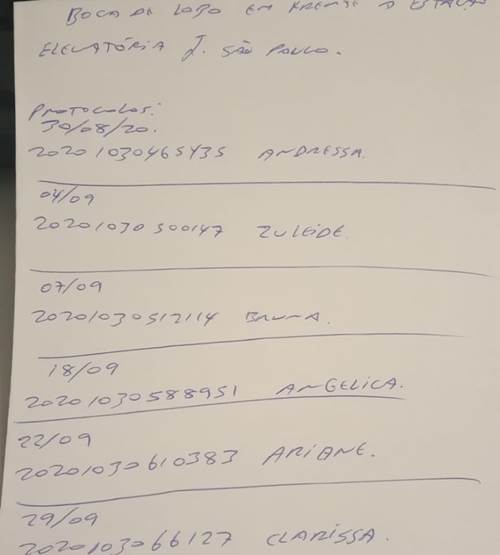 BOCA DE LOBO EM FRENTE A ESTAÇÃO
ELEVATÓRIA J. SÃO PAULO.
PROTOCOLOS:
30/08/20.
20201030465435 ANDRESSA.
04/09
20201030500147 ZULEIDE.
07/09
20201030512114 BRUNA.
18/09
20201030588951 ANGELICA.
22/09
20201030610383 ARIANE.
29/09
2020103066127 CLARISSA.